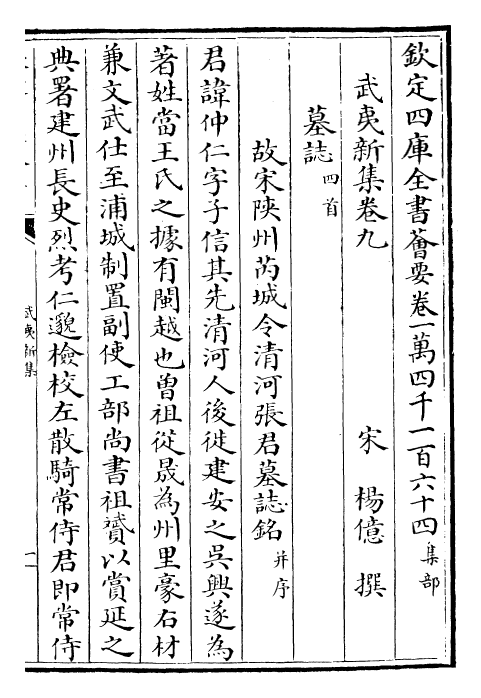 欽定四庫全書薈要卷一萬四千一百六十四集部
武夷新集卷九　宋　楊億　撰
墓誌四首
故宋陜州芮城令清河張君墓誌銘并序
君諱仲仁字子信其先清河人後徙建安之吳興遂為
著姓當王氏之據有閩越也曾祖從晟為州里豪右材
兼文武仕至浦城制置副使工部尚書祖贇以賞延之
典署建州長史烈考仁邈檢校左散騎常侍君即常侍
武夷新集
一